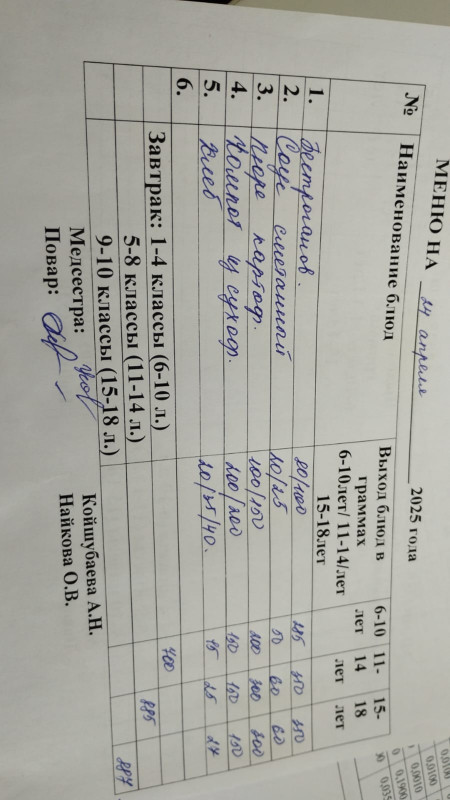 МЕНЮ НА 24 апреля 2025 года
№ Наименование блюд Выход блюд в граммах 6-10лет/ 11-14/лет 15-18лет 6-10 лет 11-14 лет 15-18 лет
1. Бестроганов. 80/100 285 350 350
2. Соус сметанный 20/25 50 60 60
3. Пюре картоф. 100/150 200 300 300
4. Компот из сухоф. 200/200 150 150 150
5. Хлеб 20/35/40. 15 25 27
6.
Завтрак: 1-4 классы (6-10 л.) 700
5-8 классы (11-14 л.) 885
9-10 классы (15-18 л.) 887
Медсестра: Койшубаева А.Н.
Повар: Найкова О.В.
0,0100
0,0100
0,0010
0,1900
0,035